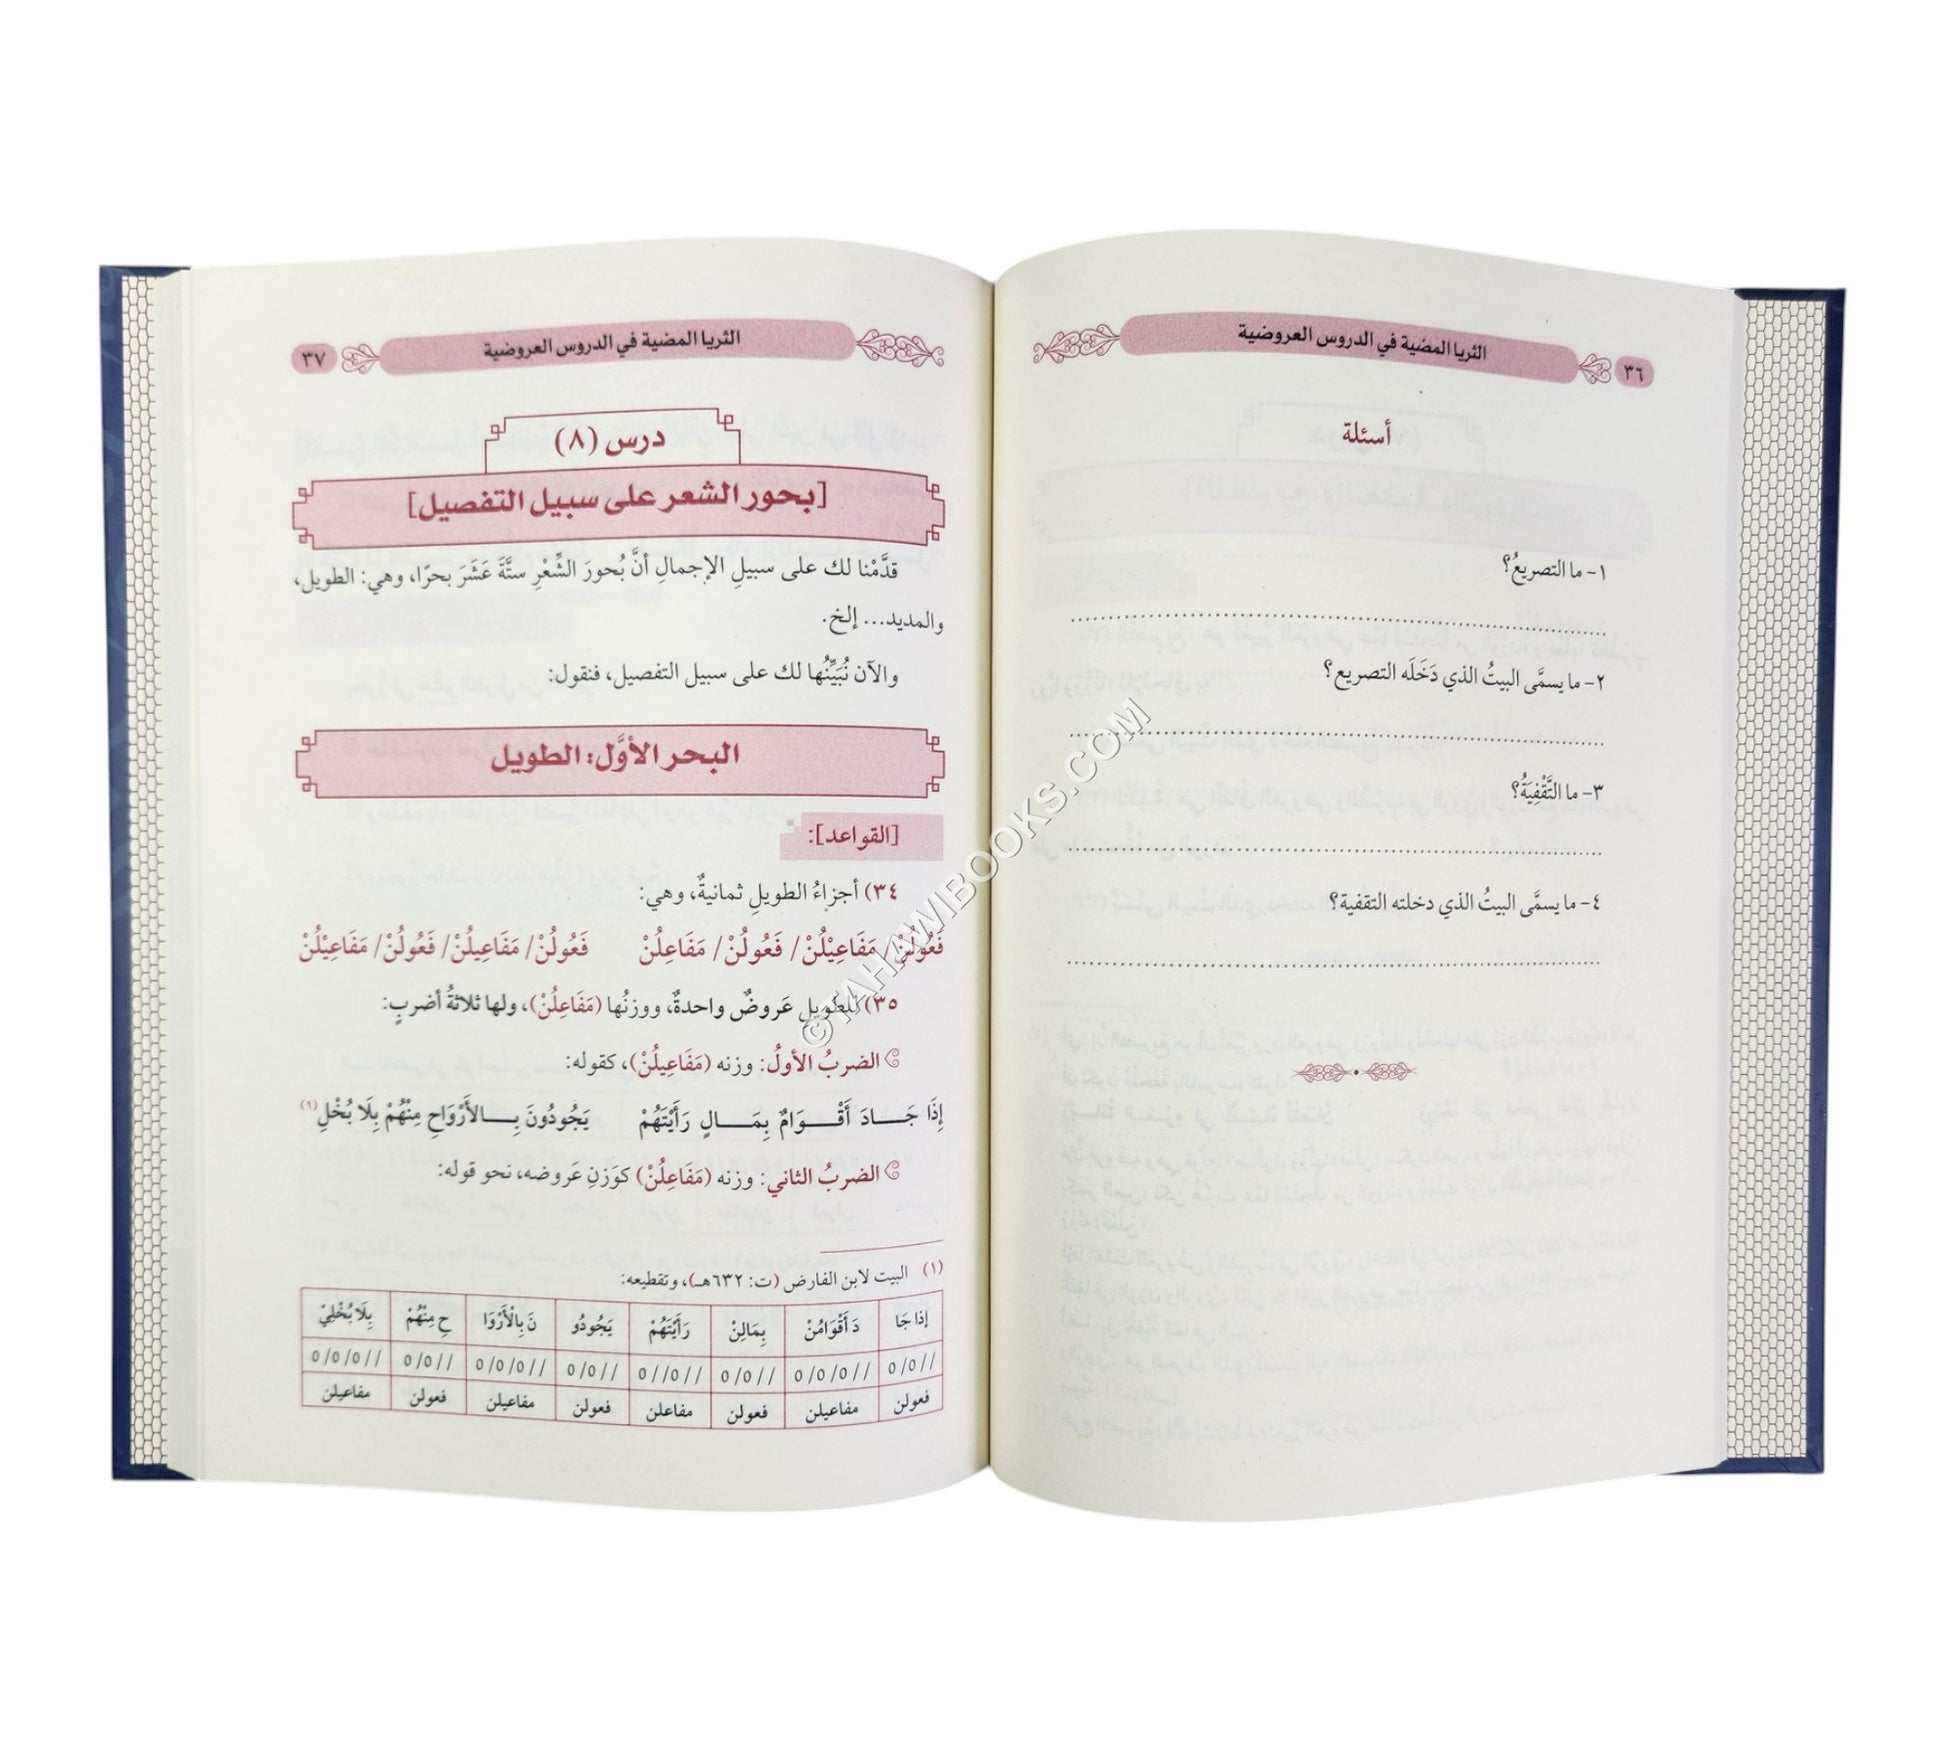 الثريا المضية في الدروس العروضية
٣٦
أسئلة
١- ما التصريعُ؟
٢- ما يسمَّى البيتُ الذي دَخَلَه التصريع؟
٣- ما التَّقْفِيَةُ؟
٤- ما يسمَّى البيتُ الذي دخلته التقفية؟
الثريا المضية في الدروس العروضية
٣٧
درس (٨)
[بحور الشعر على سبيل التفصيل]
قدَّمْنا لك على سبيلِ الإجمالِ أنَّ بُحورَ الشِّعْرِ ستَّةَ عَشَرَ بحرًا، وهي: الطويل،
والمديد... إلخ.
والآن نُبَيِّنُها لك على سبيل التفصيل، فنقول:
البحر الأوَّل: الطويل
[القواعد]:
٣٤) أجزاءُ الطويلِ ثمانيةٌ، وهي:
فَعُولُنْ/ مَفَاعِيْلُنْ/ فَعُولُنْ/ مَفَاعِلُنْ فَعُولُنْ/ مَفَاعِيلُنْ/ فَعُولُنْ/ مَفَاعِيْلُنْ
٣٥) للطويلِ عَروضٌ واحدةٌ، ووزنُها (مَفَاعِلُنْ)، ولها ثلاثةُ أضربٍ:
الضربُ الأولُ: وزنه (مَفَاعِيلُنْ)، كقوله:
إِذَا جَـــادَ أَقْـــوَامٌ بِمَـــالٍ رَأَيْتَهُمْ يَجُودُونَ بِـــالأَرْوَاحِ مِنْهُمْ بِلَا بُخْلِ(١)
الضربُ الثاني: وزنه (مَفَاعِلُنْ) كوَزنِ عَروضه، نحو قوله:
(١) البيت لابن الفارض (ت: ٦٣٢هـ)، وتقطيعه:
إذا جَا دَ أَقْوَامُنْ بِمَالِنْ رَأَيْتَهُمْ يَجُودُو نَ بِالْأَرْوَا حِ مِنْهُمْ بِلَا بُخْلِيْ
//٥/٥ //٥/٥/٥ //٥/٥ //٥//٥ //٥/٥ //٥/٥/٥ //٥/٥ //٥/٥/٥
فعولن مفاعيلن فعولن مفاعلن فعولن مفاعيلن فعولن مفاعيلن
© TAHAWIBOOKS.COM